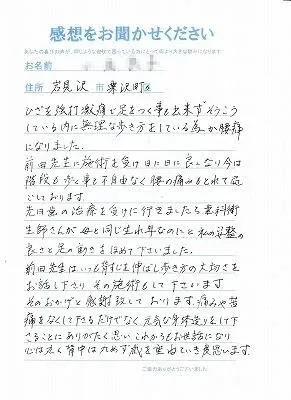 感想をお聞かせください
あなたの喜びの声が、同じような症状で困っている方にとって何より大きな励みになります
お名前
住所 岩見沢 市 栗沢町
ひざを強打激痛で足をつく事も出来ずそうこう
している内に無理な歩き方をしている為か腰痛
になりました。
前田先生に施術を受け日に日に良くなり今は
階段も歩く事も不自由なく腰の痛みもとれて過
ごしております。
先日歯の治療を受けに行きましたら歯科衛
生師さんが母と同じ生れ年なのにと私の姿勢の
良さと足の動きをほめて下さいました。
前田先生はいつも背すじを伸ばし歩き方の大切さを
お話し下さり その施術もして下さいます
そのおかげと感謝致しております。痛みや苦
痛をなくして下さるだけでなく元気な身体造りをして下
さることにありがたく思いこれからもお世話になり
心は丸く背中は丸めず歳を重ねていき度思います。
ご協力ありがとうございました